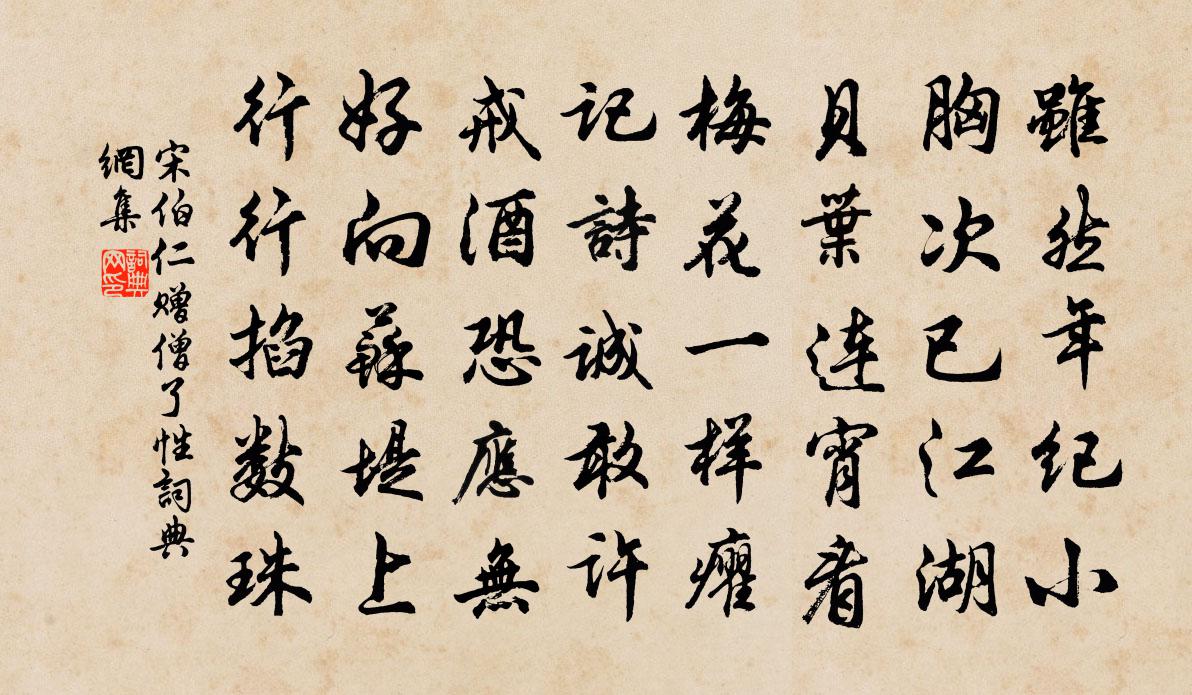 雖然年纪小
胸次已江湖
貝葉連宵看
梅花一样癯
记詩誠敢许
戒酒恐應無
好向蘇堤上
行行掐數珠
宋伯仁赠僧了性詞典
網集
詞典网印